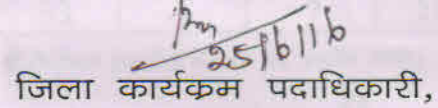 25/6/16
जिला कार्यक्रम पदाधिकारी,